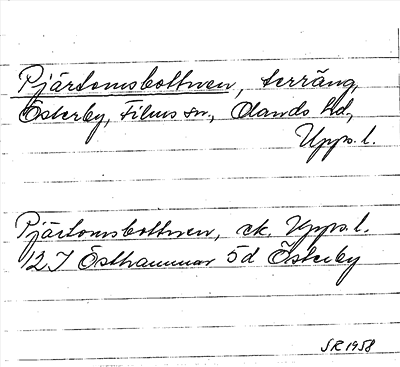 Pjärtomsbottnen, terräng,
Österby, Films sn, Olands hd,
Upps. l.
Pjärtomsbottnen, ek. Upps. l.
12 I Östhammar 5d Österby
SR 1958